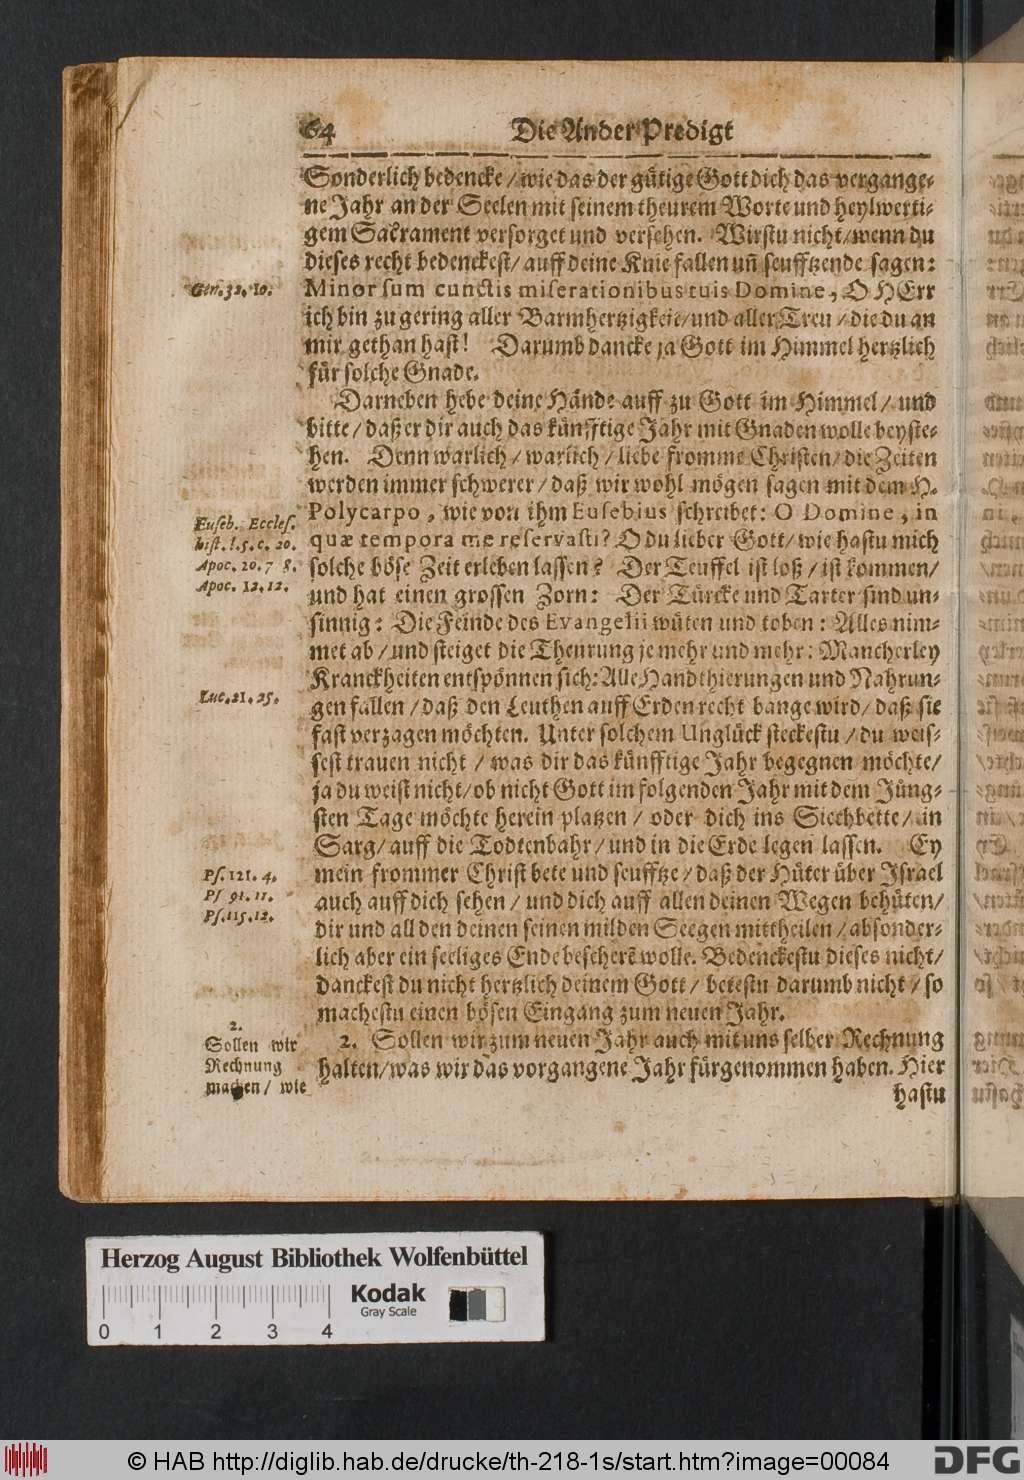 64 Die Ander Predigt
Sonderlich bedencke / wie das der gütige Gott dich das vergange-
ne Jahr an der Seelen mit seinem theurem Worte und heylwerti-
gem Sacrament versorget und versehen. Wirstu nicht / wenn du
dieses recht bedenckest / auff deine Knie fallen uñ seufftzende sagen:
Gen. 32. 10.
Minor sum cunctis miserationibus tuis Domine, O HErr
ich bin zu gering aller Barmhertzigkeit / und aller Treu / die du an
mir gethan hast! Darumb dancke ja Gott im Himmel hertzlich
für solche Gnade.
Darneben hebe deine Hände auff zu Gott im Himmel / und
bitte / daß er dir auch das künfftige Jahr mit Gnaden wolle beyste-
hen. Denn warlich / warlich / liebe fromme Christen / die Zeiten
werden immer schwerer / daß wir wohl mögen sagen mit dem H.
Euseb. Eccles.
hist. l. 5. c. 20.
Apoc. 20. 7 8.
Apoc. 12. 12.
Polycarpo, wie von ihm Eusebius schreibet: O Domine, in
quæ tempora me reservasti? O du lieber Gott / wie hastu mich
solche böse Zeit erleben lassen? Der Teuffel ist loß / ist kommen /
und hat einen grossen Zorn: Der Türcke und Tarter sind un-
sinnig: Die Feinde des Evangelii wüten und toben: Alles nim-
met ab / und steiget die Theurung je mehr und mehr: Mancherley
Kranckheiten entspönnen sich: Alle Handthierungen und Nahrun-
Luc. 21. 25.
gen fallen / daß den Leuthen auff Erden recht bange wird / daß sie
fast verzagen möchten. Unter solchem Unglück steckestu / du weis-
sest trauen nicht / was dir das künfftige Jahr begegnen möchte /
ja du weist nicht / ob nicht Gott im folgenden Jahr mit dem Jüng-
sten Tage möchte herein platzen / oder dich ins Siechbette / in
Sarg / auff die Todtenbahr / und in die Erde legen lassen. Ey
Ps. 121. 4.
Ps 91. 11.
Ps. 115. 12.
mein frommer Christ bete und seufftze / daß der Hüter über Israel
auch auff dich sehen / und dich auff allen deinen Wegen behüten /
dir und all den deinen seinen milden Seegen mittheilen / absonder-
lich aber ein seeliges Ende bescherẽ wolle. Bedenckestu dieses nicht /
danckest du nicht hertzlich deinem Gott / betestu darumb nicht / so
machestu einen bösen Eingang zum neuen Jahr.
2.
Sollen wir
Rechnung
machen / wie
2. Sollen wir zum neuen Jahr auch mit uns selber Rechnung
halten / was wir das vorgangene Jahr fürgenommen haben. Hier
hastu
Herzog August Bibliothek Wolfenbüttel
Kodak
Gray Scale
0 1 2 3 4
© HAB http://diglib.hab.de/drucke/th-218-1s/start.htm?image=00084
DFG